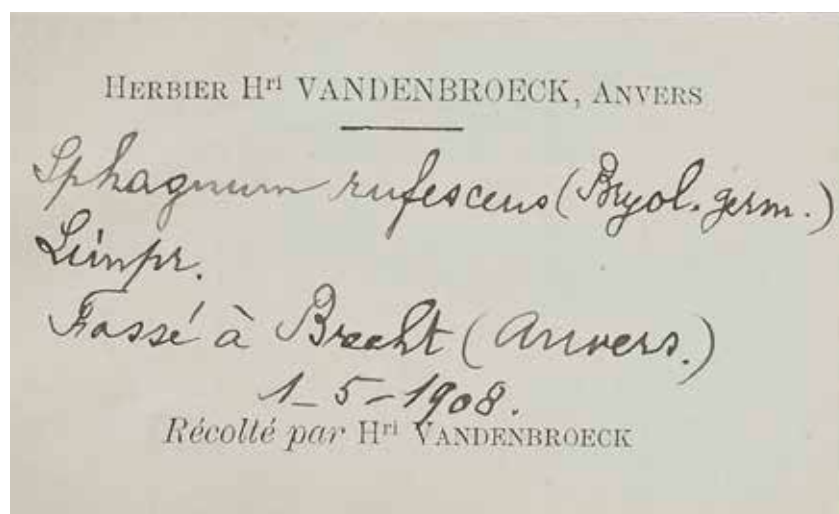 HERBIER Hri VANDENBROECK, ANVERS
Sphagnum rufescens (Bryol. germ.)
Limpr.
Fossé à Brecht (Anvers.)
1-5-1908.
Récolté par Hri VANDENBROECK